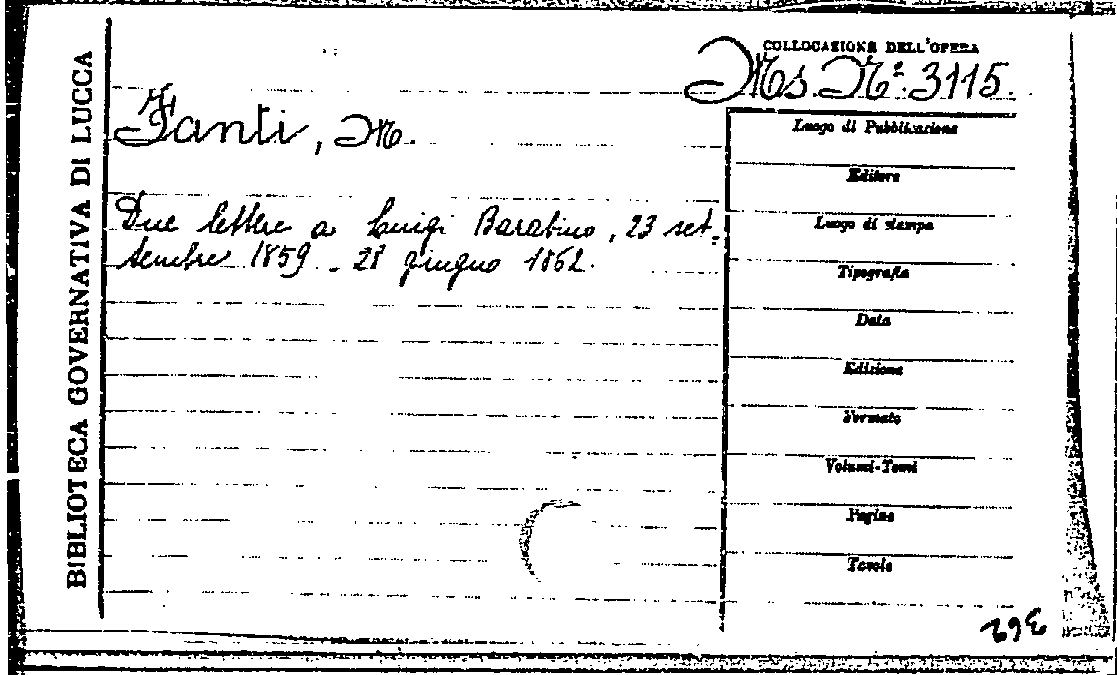 BIBLIOTECA GOVERNATIVA DI LUCCA
COLLOCAZIONE DELL'OPERA
Ms. Nº. 3115.
Fanti, M.
Due lettere a Luigi Barabino, 23 set-
tembre 1859 - 28 giugno 1862.
Luogo di Pubblicazione
Editore
Luogo di stampa
Tipografia
Data
Edizione
Formato
Volumi-Tomi
Pagine
Tavole
362